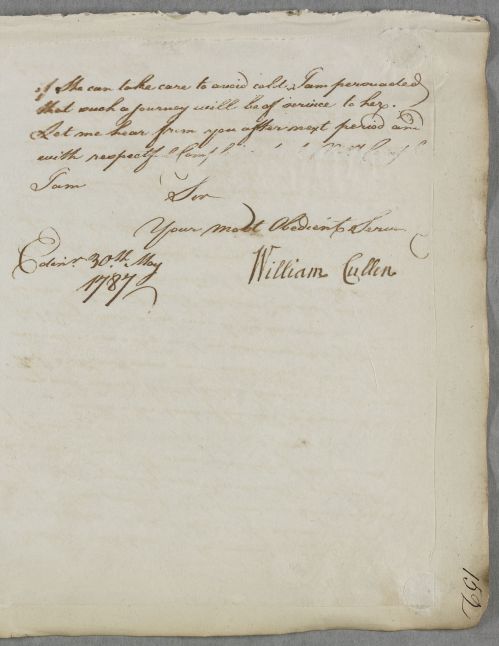 if She can take care to avoid cold, I am perswaded
that such a journey will be of service to her.
Let me hear from you after next period and
with respectfull
I am
Sir
Your most Obedient Servan
Edinr. 30th May
1787
William Cullen
152